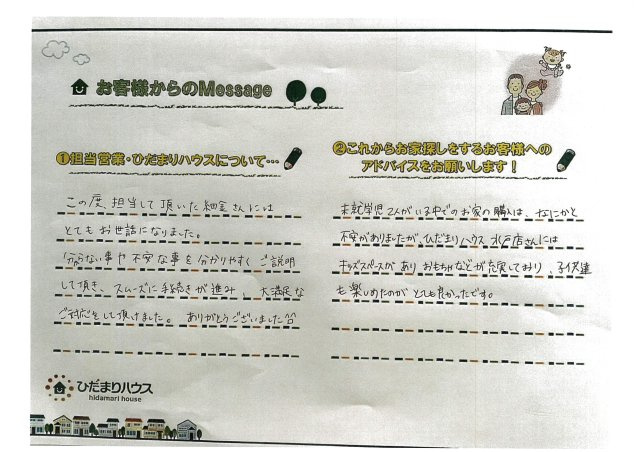 お客様からのMessage
❶担当営業・ひだまりハウスについて…
この度、担当して頂いた細金さんには
とてもお世話になりました。
分からない事や不安な事を分かりやすくご説明
して頂き、スムーズに手続きが進み、大満足な
ご対応をして頂けました。ありがとうございました
❷これからお家探しをするお客様への
アドバイスをお願いします！
未就学児2人がいる中でのお家の購入は、なにかと
不安がありましたが、ひだまりハウス水戸店さんには
キッズスペースがありおもちゃなどが充実しており、子供達
も楽しめたのがとても良かったです。
ひだまりハウス
hidamari house